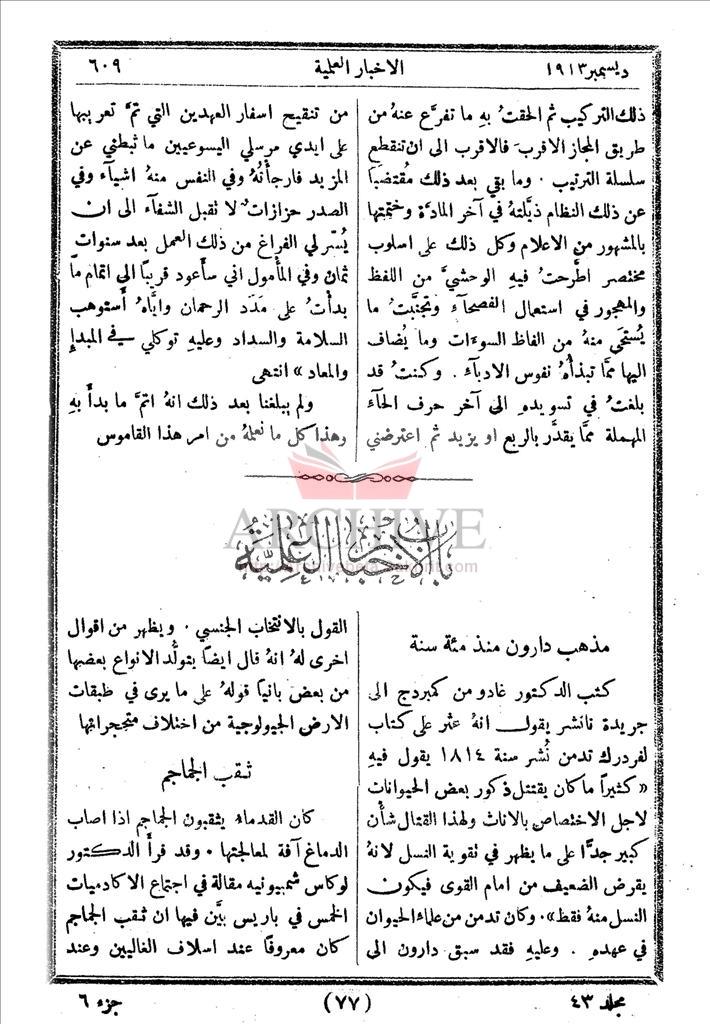 ديسمبر ١٩١٣
الاخبار العلمية
٦٠٩
ذلك التركيب ثم الحقتُ بهِ ما تفرَّع عنهُ من
طريق المجاز الاقرب فالاقرب الى ان تنقطع
سلسلة الترتيب . وما بقي بعد ذلك مقتضباً
عن ذلك النظام ذيَّلتهُ في آخر المادّة وختمتها
بالمشهور من الاعلام وكل ذلك على اسلوب
مختصر اطَّرحتُ فيهِ الوحشيَّ من اللفظ
والمهجور في استعمال الفصحآء وتجنَّبتُ ما
يُستحيَ منهُ من الفاظ السوءات وما يُضاف
اليها ممَّا تبذأُهُ نفوس الادبآء . وكنتُ قد
بلغتُ في تسويدهِ الى آخر حرف الحآء
المهملة ممَّا يقدَّر بالربع او يزيد ثم اعترضني
من تنقيح اسفار العهدين التي تمَّ تعريبها
على ايدي مرسلي اليسوعيين ما ثبطني عن
المزيد فارجأْتُهُ وفي النفس منهُ اشيآء وفي
الصدر حزازات لا تقبل الشفآء الى ان
يُسّر لي الفراغ من ذلك العمل بعد سنوات
ثمان وفي المأمول اني سأَعود قريباً الى اتمام ما
بدأتُ على مَدَد الرحمان واياهُ أَستوهب
السلامة والسداد وعليهِ توكلي في المبدإِ
والمعاد» انتهى
ولم يبلغنا بعد ذلك انهُ اتمَّ ما بدأَ بهِ
وهذا كل ما نعلمهُ من امر هذا القاموس
ARCHIVE
باب الاخبار العلمية
مذهب دارون منذ مئة سنة
كتب الدكتور غادو من كمبردج الى
جريدة ناتشر يقول انهُ عثر على كتاب
لفردرك تدمن نُشر سنة ١٨١٤ يقول فيهِ
«كثيراً ما كان يقتتل ذكور بعض الحيوانات
لاجل الاختصاص بالاناث ولهذا القتال شأن
كبير جدًّا على ما يظهر في تقوية النسل لانهُ
يقرض الضعيف من امام القوى فيكون
النسل منهُ فقط». وكان تدمن من علماء الحيوان
في عهدهِ . وعليهِ فقد سبق دارون الى
القول بالانتخاب الجنسي . ويظهر من اقوال
اخرى لهُ انهُ قال ايضاً بتولُّد الانواع بعضها
من بعض بانياً قولهُ على ما يرى في طبقات
الارض الجيولوجية من اختلاف متحجراتها
ثقب الجماجم
كان القدماء يثقبون الجماجم اذا اصاب
الدماغ آفة لمعالجتها . وقد قرأَ الدكتور
لوكاس شمبيونيه مقالة في اجتماع الاكادميات
الخمس في باريس بيَّن فيها ان ثقب الجماجم
كان معروفاً عند اسلاف الغاليين وعند
مجلد ٤٣
(٧٧)
جزء ٦